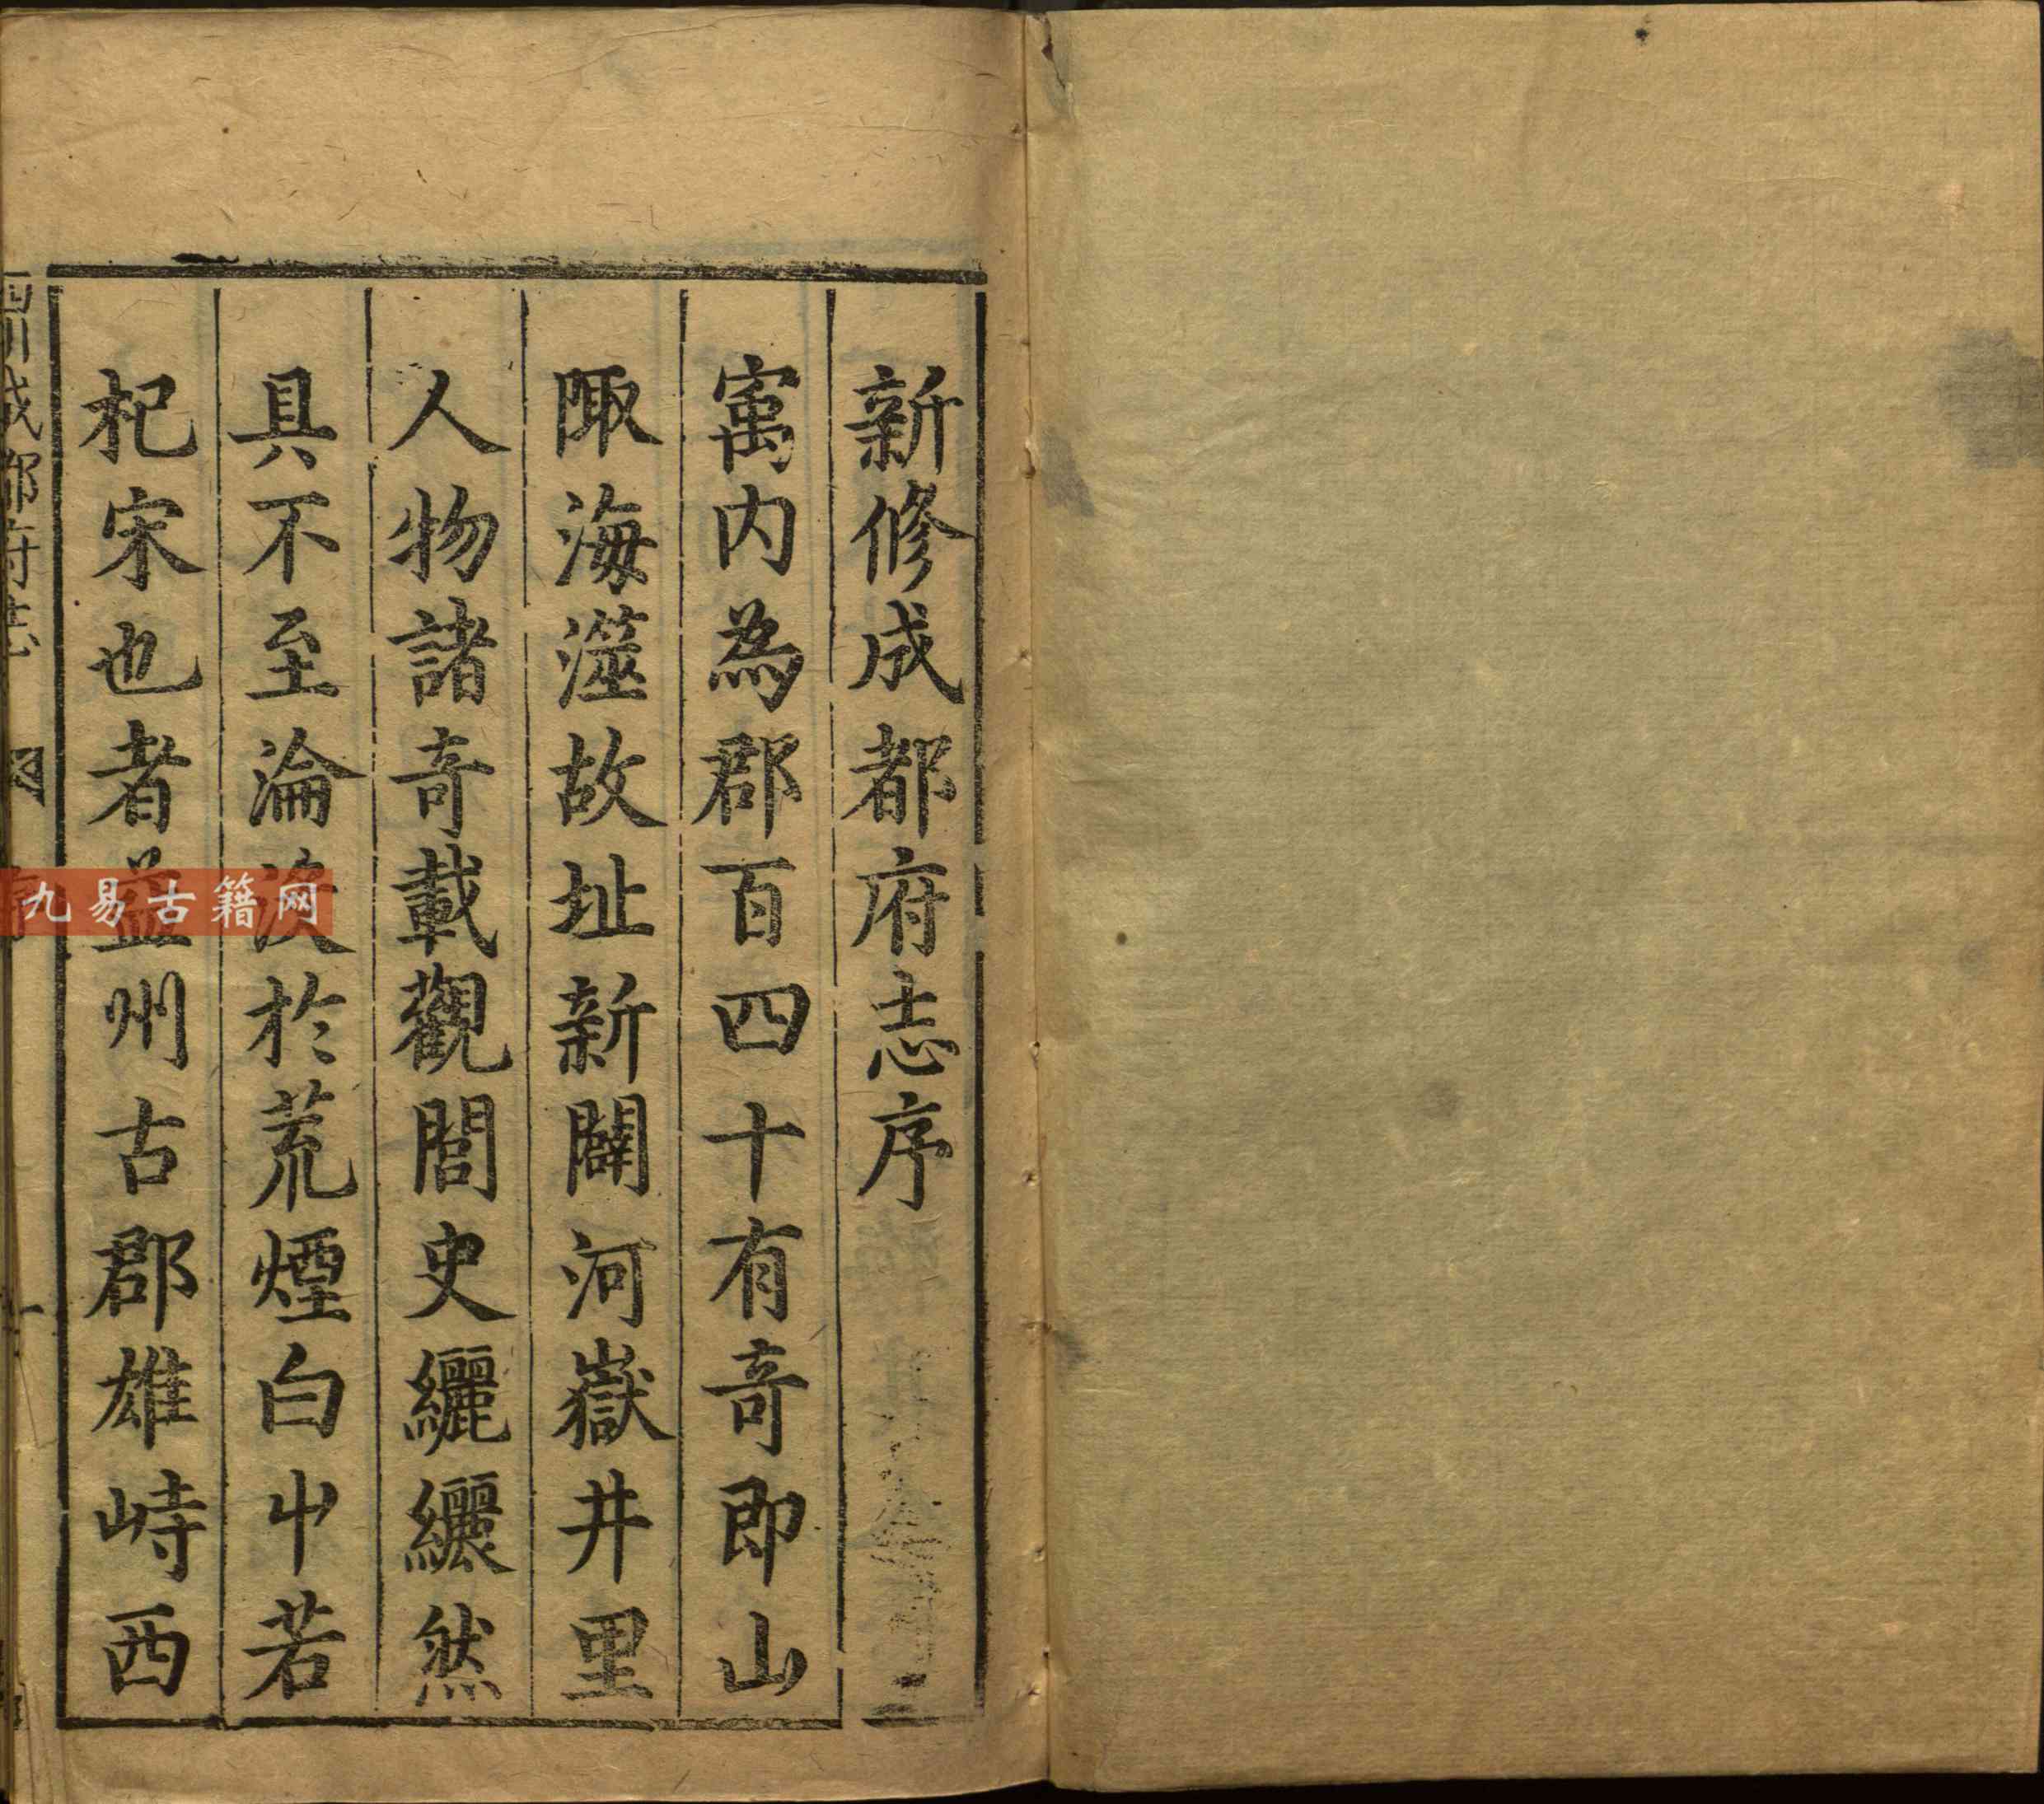 新修成都府志序
寓内為郡百四十有奇即山
陬海澨故址新闢河嶽井里
人物諸奇載觀閭史纚纚然
具不至淪沒於荒煙白屮若
杞宋也者益州古郡雄峙西
四川成都府志
一
九易古籍网